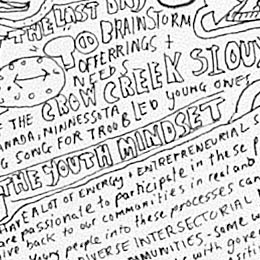 THE LAST DAY
BRAINSTORM
OFFERRINGS +
NEEDS
CROW CREEK SIOUX
THE
CANADA, MINNESOTA
LED YOUNG ONES
G SONG FOR TROUBLED
THE YOUTH MINDSET
HAVE A LOT OF ENERGY + ENTREPRENEURIAL S
are passionate to participate in these p
ive back to our communities in real and
young people into these processes can
DIVERSE INTERSECTORIAL
COMMUNITIES - some w
with gover